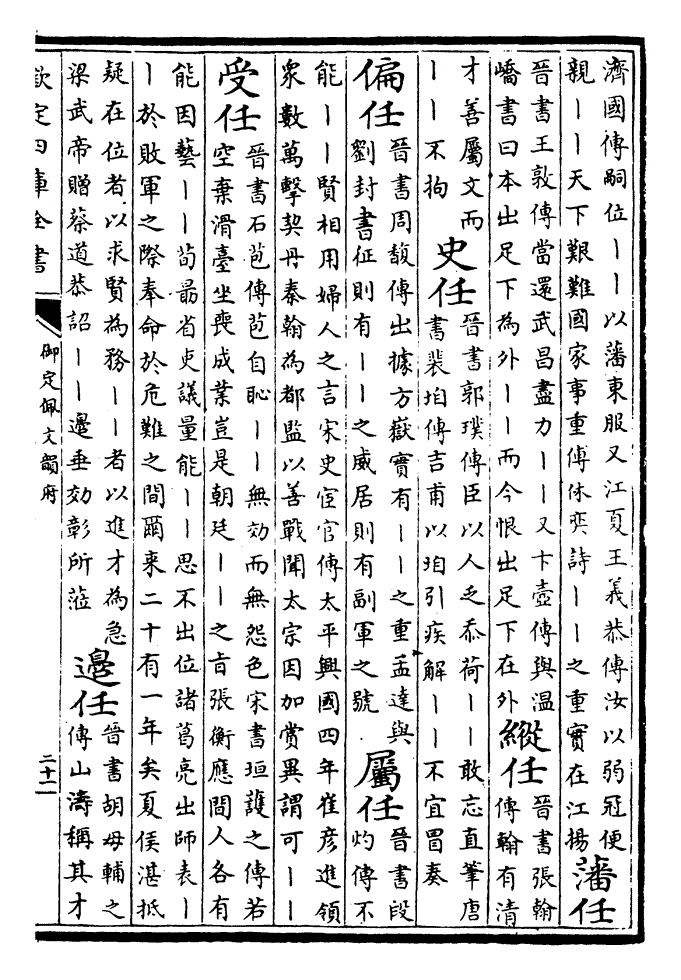 濟國傳嗣位丨丨以藩東服又江夏王義恭傳汝以弱冠便
親丨丨天下艱難國家事重傅休奕詩丨丨之重實在江揚
藩任
晉書王敦傳當還武昌盡力丨丨又卞壼傳與溫
嶠書曰本出足下為外丨丨而今恨出足下在外
縱任
晉書張翰
傳翰有清
才善屬文而
丨丨不拘
史任
晉書郭璞傳臣以人乏忝荷丨丨敢忘直筆唐
書裴垍傳吉甫以垍引疾解丨丨不宜冒奏
偏任
晉書周馥傳出據方嶽實有丨丨之重孟達與
劉封書征則有丨丨之威居則有副軍之號
屬任
晉書段
灼傳不
能丨丨賢相用婦人之言宋史宦官傳太平興國四年崔彥進領
衆數萬擊契丹秦翰為都監以善戰聞太宗因加賞異謂可丨丨
受任
晉書石苞傳苞自恥丨丨無効而無怨色宋書垣護之傳若
空棄滑臺坐喪成業豈是朝廷丨丨之旨張衡應間人各有
能因藝丨丨荀勗省吏議量能丨丨思不出位諸葛亮出師表丨
丨於敗軍之際奉命於危難之間爾来二十有一年矣夏侯湛抵
疑在位者以求賢為務丨丨者以進才為急
梁武帝贈蔡道恭詔丨丨邊垂効彰所蒞
邊任
晉書胡母輔之
傳山濤稱其才
欽定四庫全書
御定佩文韻府
二十二